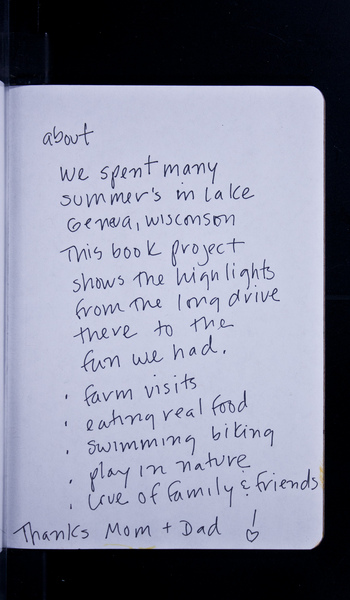 about
we spent many
summer's in lake
Geneva, wisconson
This book project
shows the highlights
from the long drive
there to the
fun we had.
· farm visits
· eating real food
· swimming biking
· play in nature
· love of family & friends
Thanks Mom + Dad ! ♡